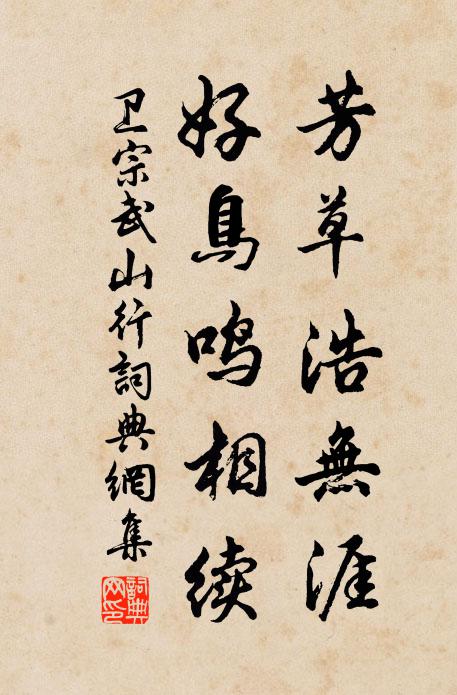 芳草浩無涯
好鳥鳴相续
卫宗武山行詞典網集
詞典網印